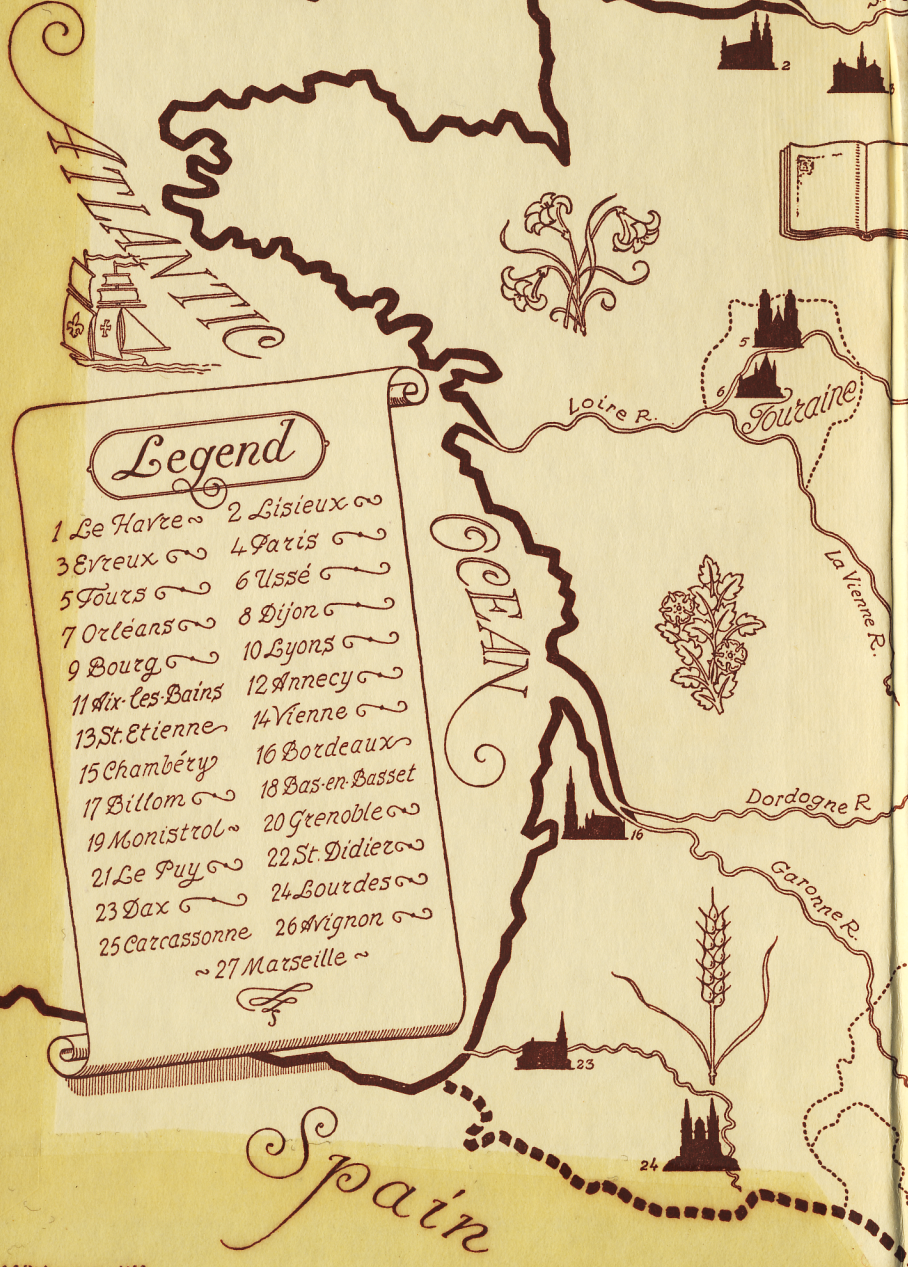 2
3
ATLANTIC
5
6
Touraine
Loire R.
Legend
1 Le Havre 2 Lisieux
3 Evreux 4 Paris
5 Tours 6 Ussé
7 Orléans 8 Dijon
9 Bourg 10 Lyons
11 Aix-les-Bains 12 Annecy
13 St. Etienne 14 Vienne
15 Chambéry 16 Bordeaux
17 Billom 18 Bas-en-Basset
19 Monistrol 20 Grenoble
21 Le Puy 22 St. Didier
23 Dax 24 Lourdes
25 Carcassonne 26 Avignon
~ 27 Marseille ~
OCEAN
La Vienne R.
Dordogne R
16
Garonne R.
23
24
Spain